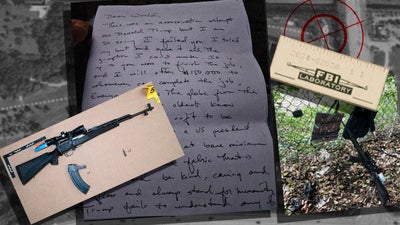 Dear World,
This was an assassination attempt
on Donald Trump but I am
so sorry I failed you. I tried
my best and gave it all the
gumption I could muster. It is
up to you now to finish the job
and I will offer $150,000 to
whomever can complete the job.
Everyone the globe from the
oldest know
fit to be
a US president
at bare minimum
fabric that's
be kind, caring and
and always stand for humanity
Trump fails to understand any
2024-02626 1 1
FBI
LABORATORY